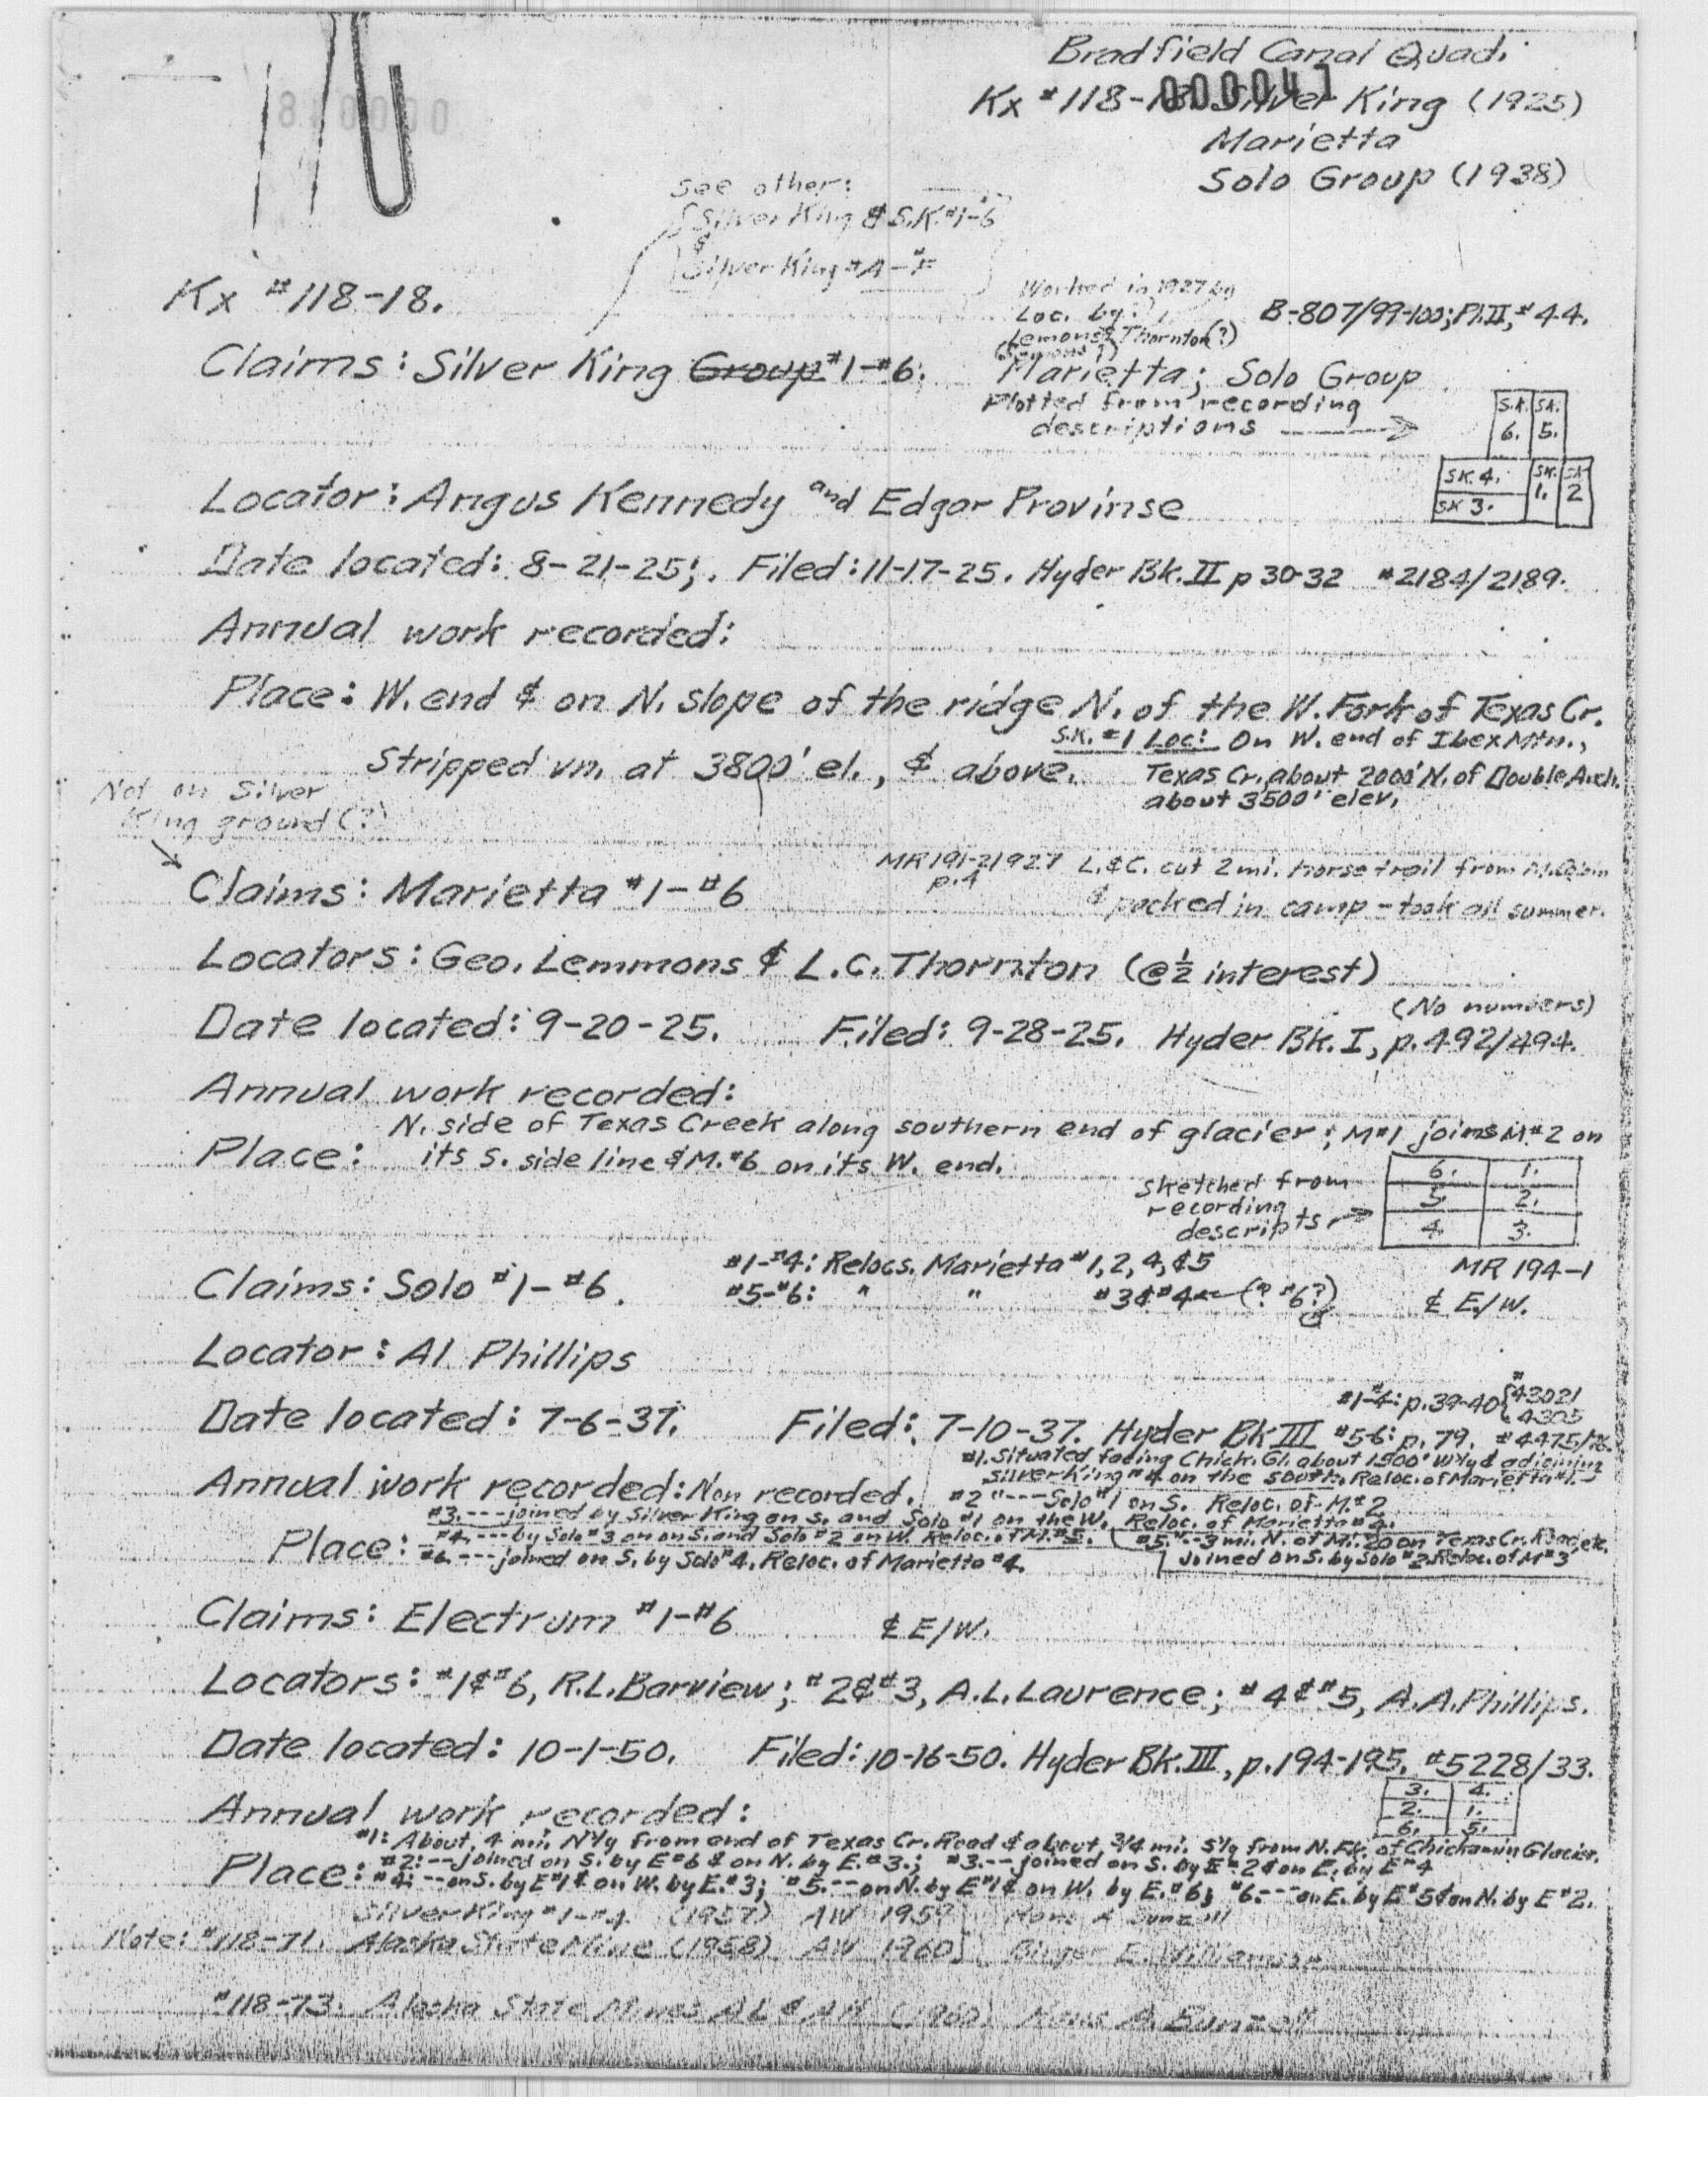 Bradfield Canal Quad.
000041
Kx #118-18. Silver King (1925)
Marietta
Solo Group (1938)
See other:
Silver King & S.K. #1-6
&
Silver King #A-#F
Kx #118-18.
Worked in 1927 by
Loc. by?
Lemons & Thornton(?)
B-807/99-100; Pl.II, #44.
Claims: Silver King Group #1-#6.
Marietta; Solo Group
Plotted from recording
descriptions
S.K. 6. S.K. 5.
S.K. 4. S.K. 1. S.K. 2
S.K 3.
Locator: Angus Kennedy and Edgar Provinse
Date located: 8-21-25; Filed: 11-17-25. Hyder Bk. II p 30-32 #2184/2189.
Annual work recorded:
Place: W. end & on N. slope of the ridge N. of the W. Fork of Texas Cr.
S.K. #1 Loc: On W. end of Ibex Mtn.,
Stripped vn. at 3800' el., & above.
Texas Cr. about 2000' N. of Double Anch.
about 3500' elev.
Not on Silver
King ground (?)
MR191-2 1927 L.&C. cut 2 mi. horse trail from
p.4
& packed in camp - took all summer.
Claims: Marietta #1-#6
Locators: Geo. Lemmons & L.C. Thornton (@ ½ interest)
(No numbers)
Date located: 9-20-25. Filed: 9-28-25. Hyder Bk. I, p. 492/494.
Annual work recorded:
N. side of Texas Creek along southern end of glacier; M#1 joins M#2 on
Place: its S. side line & M.#6 on its W. end.
Sketched from
recording
descripts
6. 1.
5. 2.
4. 3.
#1-#4: Relocs. Marietta #1, 2, 4, & 5
MR 194-1
Claims: Solo #1-#6.
#5-#6: " " #3 & #4 (? #6?)
& E./W.
Locator: Al Phillips
#1-4: p. 39-40 #43021
4305
Date located: 7-6-37. Filed: 7-10-37. Hyder Bk III #5-6: p. 79. #4475/76.
#1. Situated facing Chick. Gl. about 1500' W'ly & adjoining
Silver King #4 on the south. Reloc. of Marietta #1.
Annual work recorded: Non recorded. #2 "--- Solo #1 on S. Reloc. of M.#2
#3. --- joined by Silver King on S. and Solo #1 on the W. Reloc. of Marietta #4.
#4. --- by Solo #3 on on S. and Solo #2 on W. Reloc. of M.#5. #5. "--3 mi. N. of Mi. 20 on Texas Cr. Road, etc.
Joined on S. by Solo #2. Reloc. of M#3
Place: #6. --- joined on S. by Solo #4. Reloc. of Marietta #4.
Claims: Electrum #1-#6 & E/W.
Locators: #1 & #6, R.L. Barview; #2 & #3, A.L. Laurence; #4 & #5, A.A. Phillips.
Date located: 10-1-50. Filed: 10-16-50. Hyder Bk. III, p. 194-195. #5228/33.
3. 4.
2. 1.
6. 5.
Annual work recorded:
#1: About 4 mi. N'ly from end of Texas Cr. Road & about 3/4 mi. S'ly from N. Fk. of Chickamin Glacier.
#2: --- joined on S. by E#6 & on N. by E.#3.; #3. --- joined on S. by E#2 & on E. by E#4
Place: #4: --- on S. by E#1 & on W. by E.#3; #5. --- on N. by E#1 & on W. by E.#6; #6. --- on E. by E#5 & on N. by E#2.
Silver King #1-#4 (1957) AW 1959
Note: #118-71. Alaska State Mine (1958) AW 1960 Birger E. Williamson
#118-73. Alaska State Mines AL & AH (1960) A. Bunzoll